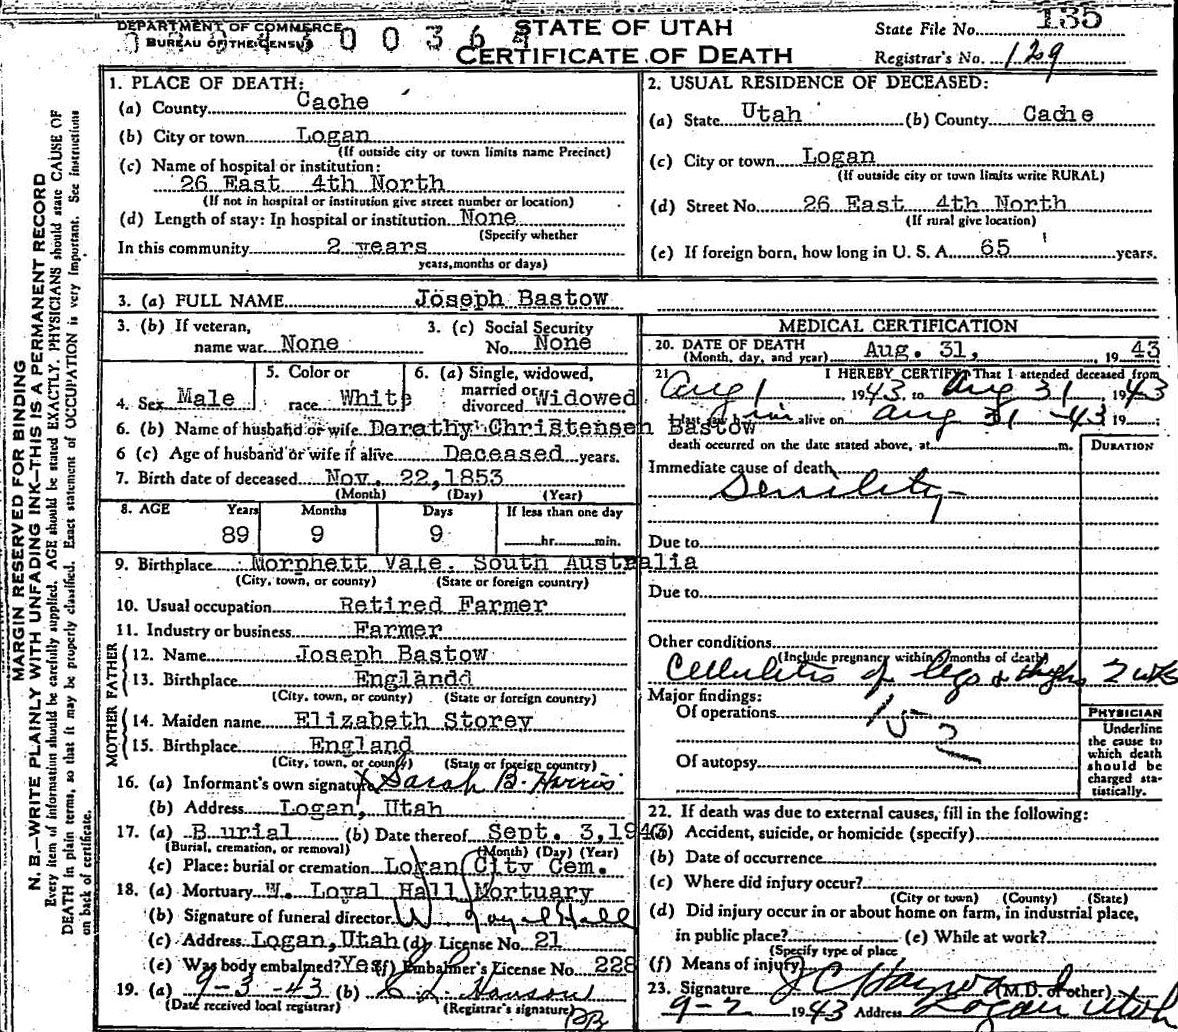 DEPARTMENT OF COMMERCE
BUREAU OF THE CENSUS
STATE OF UTAH
CERTIFICATE OF DEATH
State File No. 135
Registrar's No. 129
MARGIN RESERVED FOR BINDING
N. B.—WRITE PLAINLY WITH UNFADING INK—THIS IS A PERMANENT RECORD
Every item of information should be carefully supplied. AGE should be stated EXACTLY. PHYSICIANS should state CAUSE OF
DEATH in plain terms, so that it may be properly classified. Exact statement of OCCUPATION is very important. See instructions
on back of certificate.
1. PLACE OF DEATH:
(a) County Cache
(b) City or town Logan
(If outside city or town limits name Precinct)
(c) Name of hospital or institution:
26 East 4th North
(If not in hospital or institution give street number or location)
(d) Length of stay: In hospital or institution None
(Specify whether
In this community 2 years
years, months or days)
2. USUAL RESIDENCE OF DECEASED:
(a) State Utah (b) County Cache
(c) City or town Logan
(If outside city or town limits write RURAL)
(d) Street No. 26 East 4th North
(If rural give location)
(e) If foreign born, how long in U. S. A. 65 years.
3. (a) FULL NAME Joseph Bastow
3. (b) If veteran, name war None
3. (c) Social Security No. None
4. Sex Male
5. Color or race White
6. (a) Single, widowed, married or divorced Widowed
6. (b) Name of husband or wife Dorathy Christensen Bastow
6 (c) Age of husband or wife if alive Deceased years.
7. Birth date of deceased Nov. 22,1853
(Month) (Day) (Year)
8. AGE Years Months Days If less than one day
89 9 9 hr. min.
9. Birthplace Morphett Vale. South Australia
(City, town, or county) (State or foreign country)
10. Usual occupation Retired Farmer
11. Industry or business Farmer
FATHER
12. Name Joseph Bastow
13. Birthplace Englandd
(City, town, or county) (State or foreign country)
MOTHER
14. Maiden name Elizabeth Storey
15. Birthplace England
(City, town, or county) (State or foreign country)
16. (a) Informant's own signature X Sarah B. Harris
(b) Address Logan, Utah
17. (a) Burial (b) Date thereof Sept. 3,1943
(Burial, cremation, or removal) (Month) (Day) (Year)
(c) Place: burial or cremation Logan City Cem.
18. (a) Mortuary W. Loyal Hall Mortuary
(b) Signature of funeral director W. Loyal Hall
(c) Address Logan,Utah (d) License No. 21
(e) Was body embalmed? Yes (f) Embalmer's License No. 228
19. (a) 9-3-43 (b) C L Hanson
(Date received local registrar) (Registrar's signature)
MEDICAL CERTIFICATION
20. DATE OF DEATH
(Month, day, and year) Aug. 31, 19 43
21. I HEREBY CERTIFY That I attended deceased from
Aug 1 1943, to Aug 31, 1943
I last saw him alive on Aug 31 -43 19
death occurred on the date stated above, at m.
DURATION
Immediate cause of death
Senility
Due to
Due to
Other conditions
(Include pregnancy within 3 months of death)
Cellulitis of legs & thighs 2 wks
Major findings:
Of operations
Of autopsy
PHYSICIAN
Underline
the cause to
which death
should be
charged sta-
tistically.
22. If death was due to external causes, fill in the following:
(a) Accident, suicide, or homicide (specify)
(b) Date of occurrence
(c) Where did injury occur?
(City or town) (County) (State)
(d) Did injury occur in or about home on farm, in industrial place,
in public place? (e) While at work?
(Specify type of place
(f) Means of injury
23. Signature J C Hayward (M.D. or other)
9-2 1943 Address Logan Utah